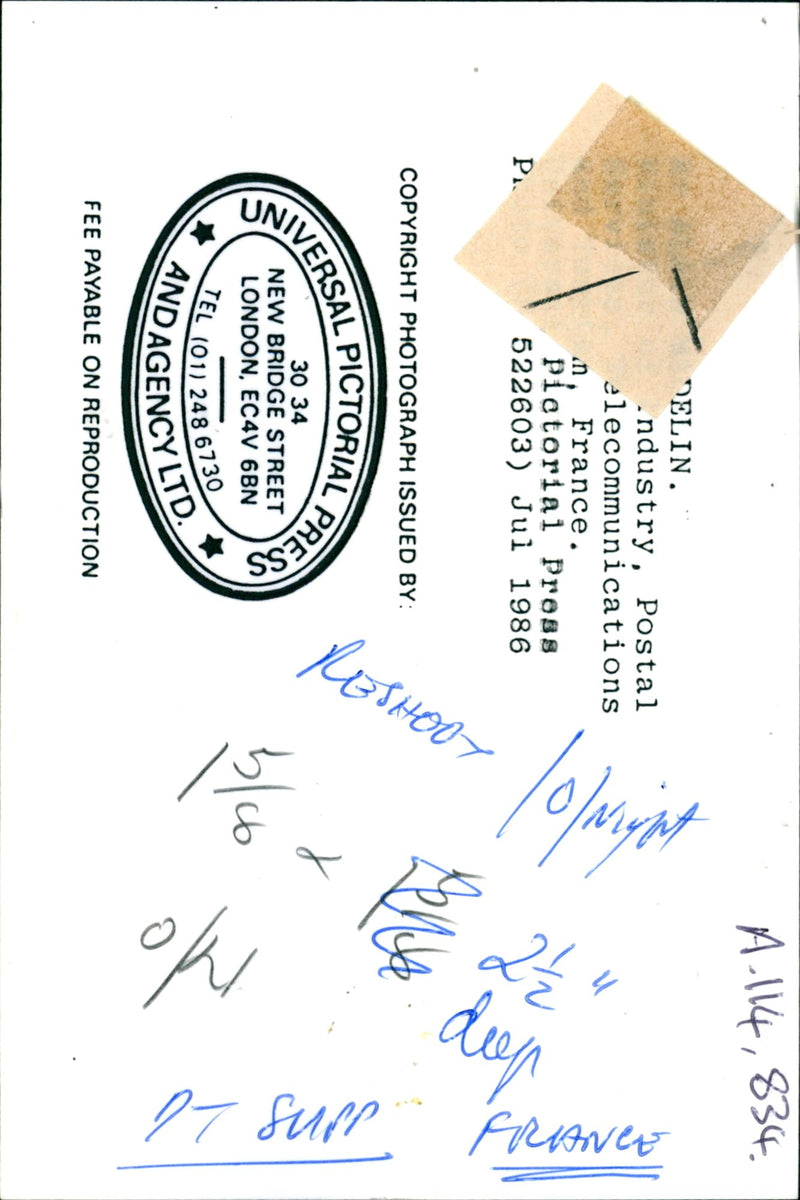 DELIN.
ndustry, Postal
elecommunications
n, France.
Pictorial Press
522603) Jul 1986
COPYRIGHT PHOTOGRAPH ISSUED BY:
UNIVERSAL PICTORIAL PRESS
AND AGENCY LTD.
30 34
NEW BRIDGE STREET
LONDON, EC4V 6BN
TEL (01) 248 6730
FEE PAYABLE ON REPRODUCTION
RESHOOT
/O/night
1 5/8
O/N
2 1/2 "
deep
PT SUPP
FRANCE
A.114,834.